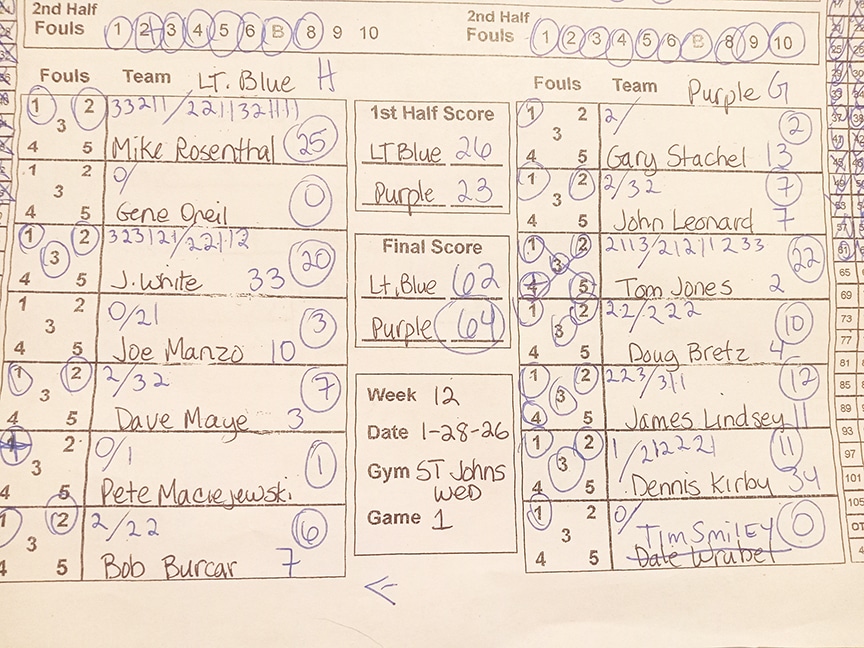 2nd Half
Fouls 1 2 3 4 5 6 B 8 9 10
2nd Half
Fouls 1 2 3 4 5 6 B 8 9 10
Fouls Team LT. Blue H
1 2 3 4 5
33211/22113211111
Mike Rosenthal 25
1 2 3 4 5
0/
Gene Oneil 0
1 2 3 4 5
323121/22112
J. White 33 20
1 2 3 4 5
0/21
Joe Manzo 10 3
1 2 3 4 5
2/32
Dave Maye 3 7
1 2 3 4 5
0/1
Pete Maciejewski 1
1 2 3 4 5
2/22
Bob Burcar 7 6
1st Half Score
LT Blue 26
Purple 23
Final Score
Lt. Blue 62
Purple 64
Week 12
Date 1-28-26
Gym ST Johns
WED
Game 1
Fouls Team Purple G
1 2 3 4 5
2/
Gary Stachel 13 2
1 2 3 4 5
2/32
John Leonard 7 7
1 2 3 4 5
2113/21211233
Tom Jones 2 22
1 2 3 4 5
22/222
Doug Bretz 4 10
1 2 3 4 5
223/311
James Lindsey 11 12
1 2 3 4 5
1/212221
Dennis Kirby 34 11
1 2 3 4 5
0/
Tim Smiley 0
Dale Wrubel
65
69
73
77
81
85
89
93
97
101
105
OT